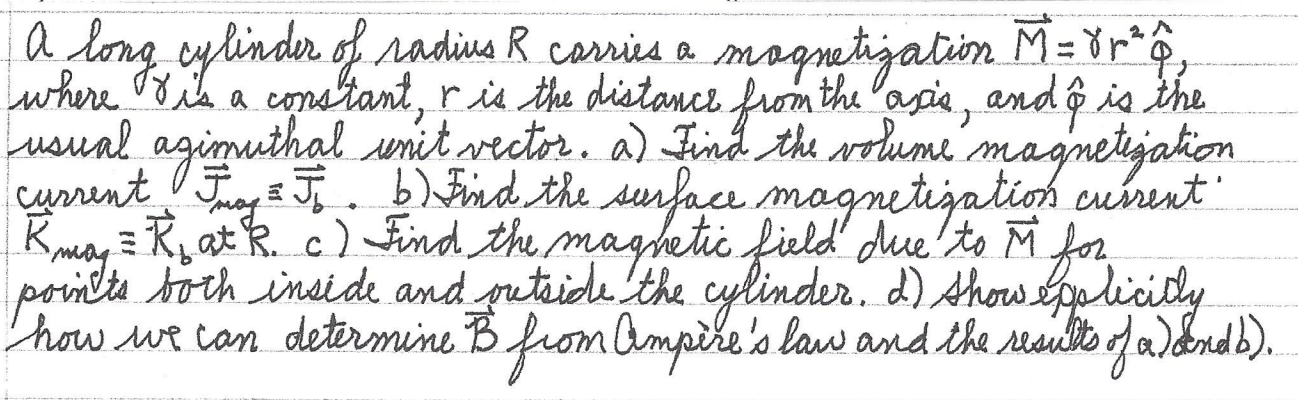 A long cylinder of radius R carries a magnetization M⃗ = γr² φ̂,
where γ is a constant, r is the distance from the axis, and φ̂ is the
usual azimuthal unit vector. a) Find the volume magnetization
current J⃗mag ≡ J⃗b. b) Find the surface magnetization current
K⃗mag ≡ K⃗b at R. c) Find the magnetic field due to M⃗ for
points both inside and outside the cylinder. d) Show explicitly
how we can determine B⃗ from Ampère's law and the results of a) and b).